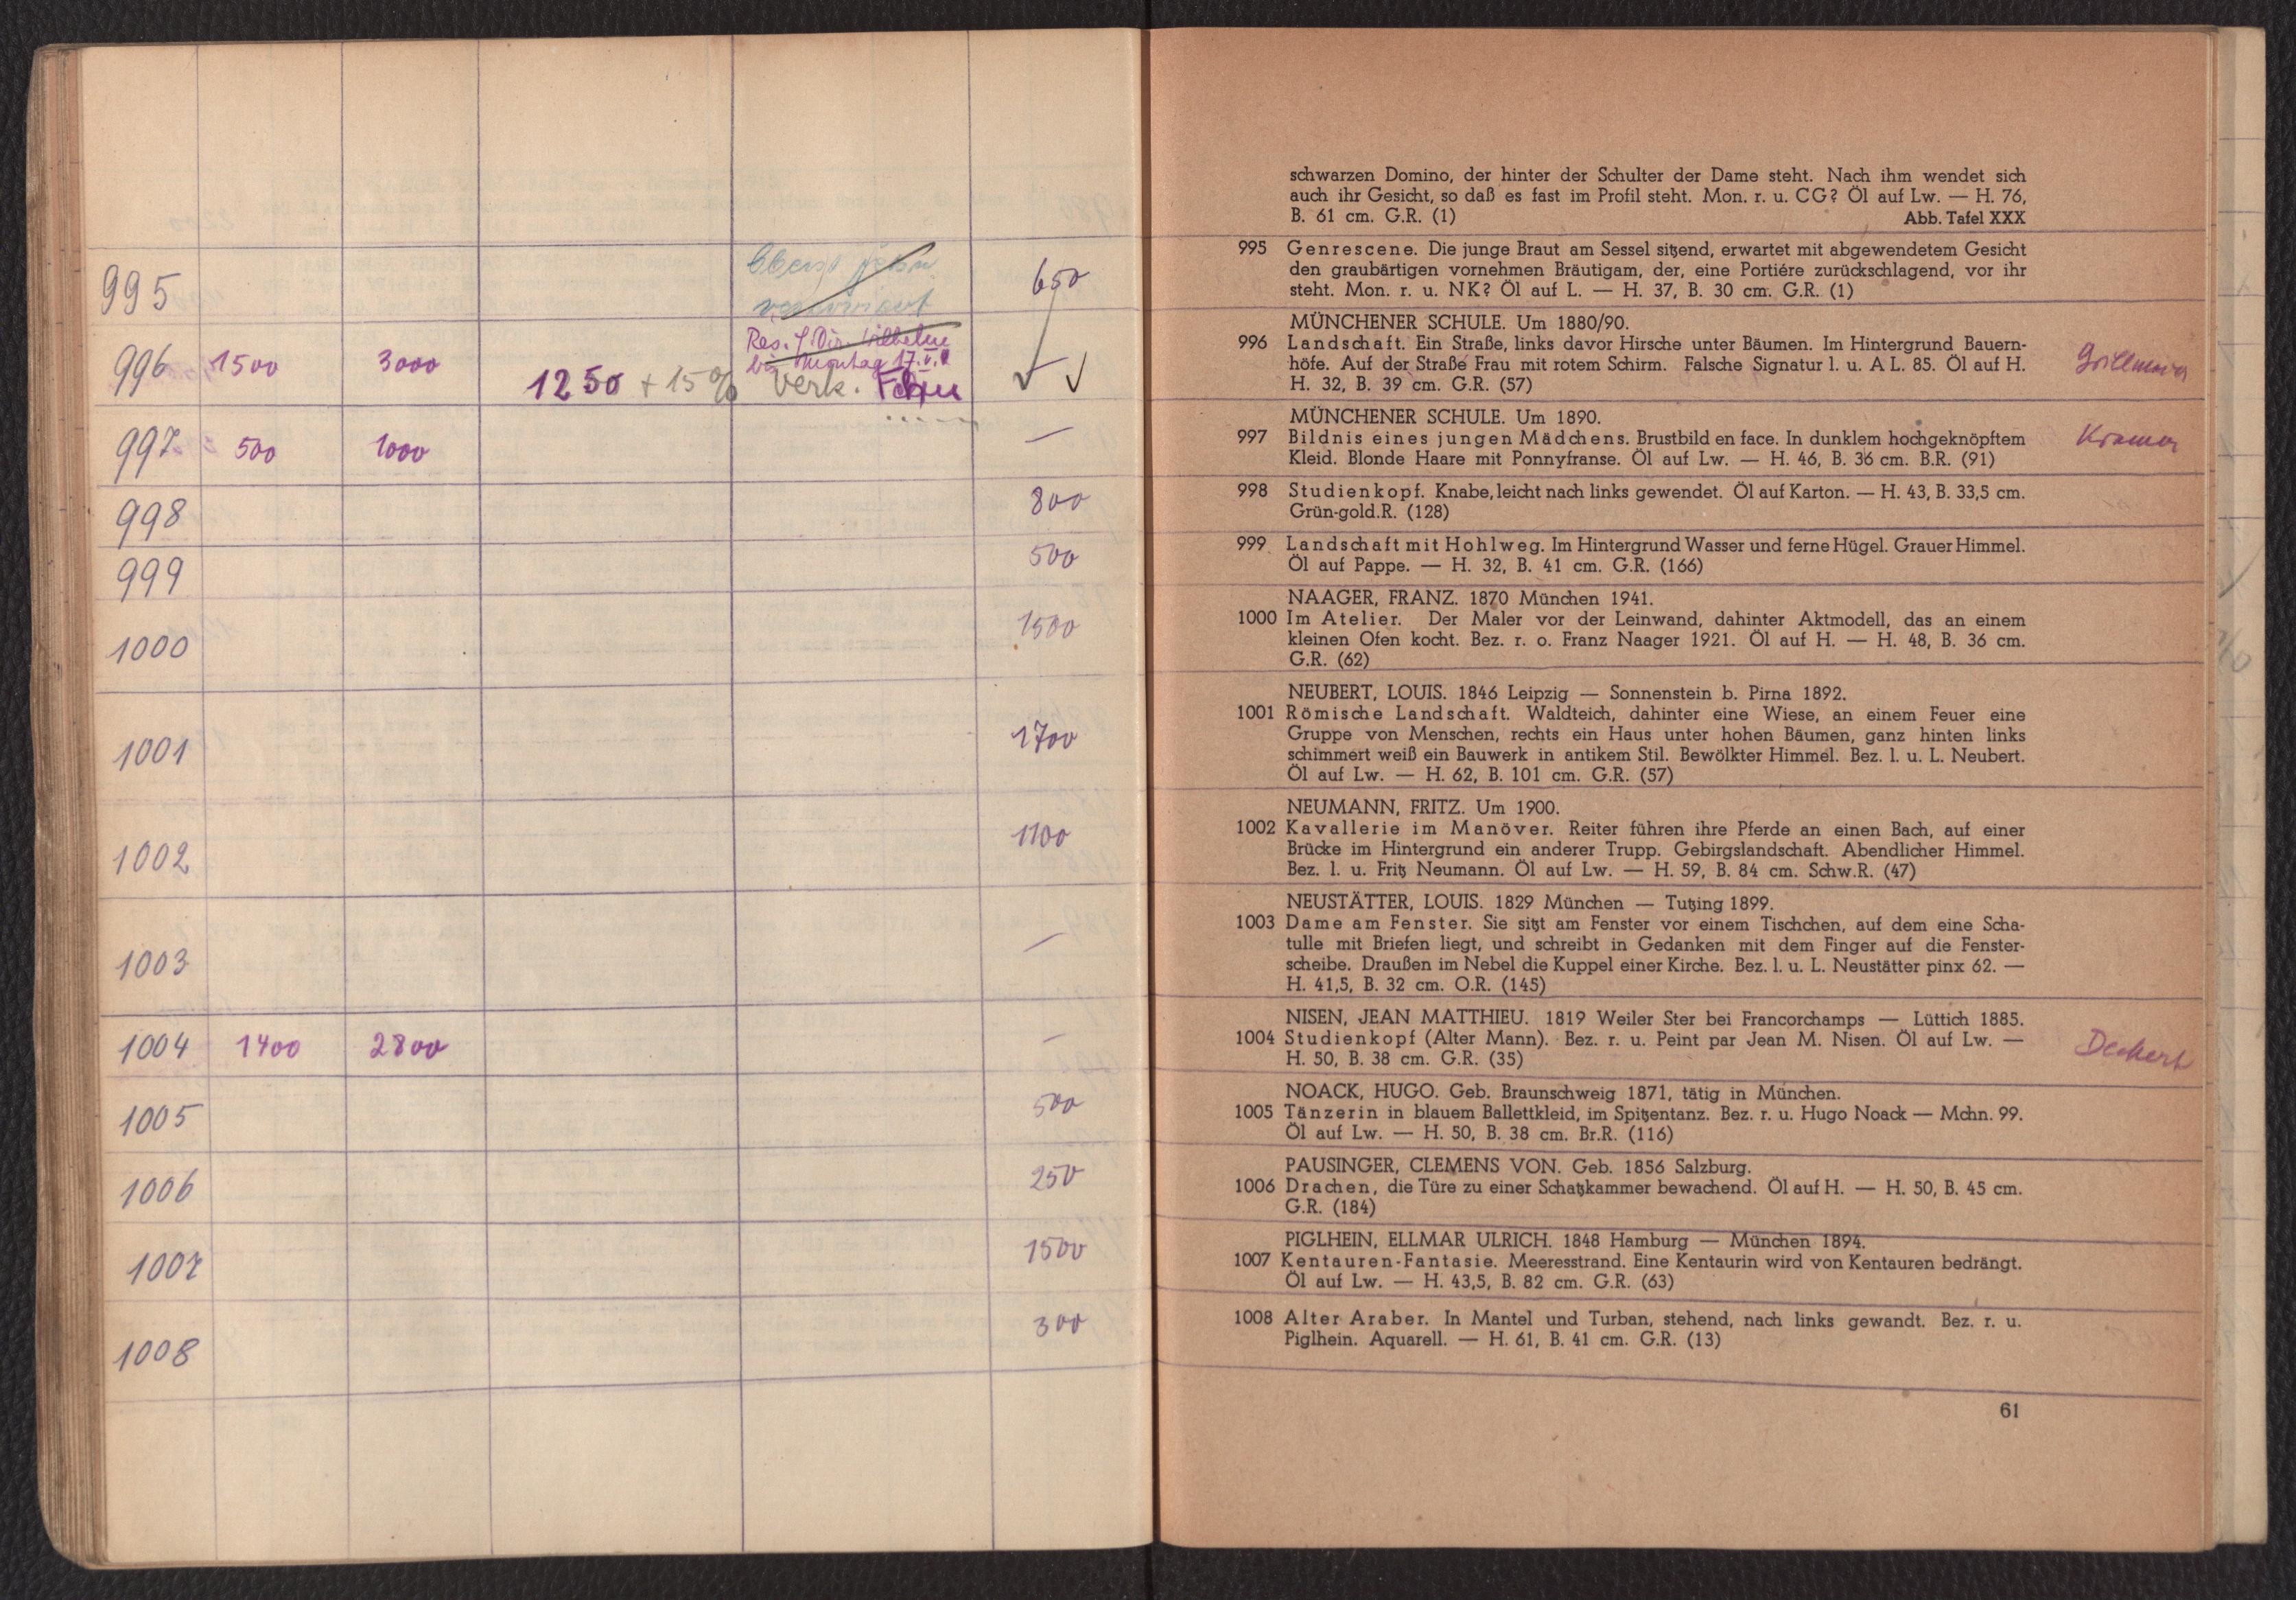 995 650
Res. f. Dir. Wilhelm
bis Montag 17. V.
996 1500 3000 1250 + 15% verk.
997 500 1000 —
998 800
999 500
1000 1500
1001 1700
1002 1100
1003 —
1004 1400 2800 —
1005 500
1006 250
1007 1500
1008 300
schwarzen Domino, der hinter der Schulter der Dame steht. Nach ihm wendet sich
auch ihr Gesicht, so daß es fast im Profil steht. Mon. r. u. CG? Öl auf Lw. — H. 76,
B. 61 cm. G.R. (1) Abb. Tafel XXX
995 Genrescene. Die junge Braut am Sessel sitzend, erwartet mit abgewendetem Gesicht
den graubärtigen vornehmen Bräutigam, der, eine Portiére zurückschlagend, vor ihr
steht. Mon. r. u. NK? Öl auf L. — H. 37, B. 30 cm. G.R. (1)
MÜNCHENER SCHULE. Um 1880/90.
996 Landschaft. Ein Straße, links davor Hirsche unter Bäumen. Im Hintergrund Bauern-
höfe. Auf der Straße Frau mit rotem Schirm. Falsche Signatur l. u. A L. 85. Öl auf H.
H. 32, B. 39 cm. G.R. (57)
MÜNCHENER SCHULE. Um 1890.
997 Bildnis eines jungen Mädchens. Brustbild en face. In dunklem hochgeknöpftem
Kleid. Blonde Haare mit Ponnyfranse. Öl auf Lw. — H. 46, B. 36 cm. B.R. (91)
998 Studienkopf. Knabe, leicht nach links gewendet. Öl auf Karton. — H. 43, B. 33,5 cm.
Grün-gold.R. (128)
999 Landschaft mit Hohlweg. Im Hintergrund Wasser und ferne Hügel. Grauer Himmel.
Öl auf Pappe. — H. 32, B. 41 cm. G.R. (166)
NAAGER, FRANZ. 1870 München 1941.
1000 Im Atelier. Der Maler vor der Leinwand, dahinter Aktmodell, das an einem
kleinen Ofen kocht. Bez. r. o. Franz Naager 1921. Öl auf H. — H. 48, B. 36 cm.
G.R. (62)
NEUBERT, LOUIS. 1846 Leipzig — Sonnenstein b. Pirna 1892.
1001 Römische Landschaft. Waldteich, dahinter eine Wiese, an einem Feuer eine
Gruppe von Menschen, rechts ein Haus unter hohen Bäumen, ganz hinten links
schimmert weiß ein Bauwerk in antikem Stil. Bewölkter Himmel. Bez. l. u. L. Neubert.
Öl auf Lw. — H. 62, B. 101 cm. G.R. (57)
NEUMANN, FRITZ. Um 1900.
1002 Kavallerie im Manöver. Reiter führen ihre Pferde an einen Bach, auf einer
Brücke im Hintergrund ein anderer Trupp. Gebirgslandschaft. Abendlicher Himmel.
Bez. l. u. Fritz Neumann. Öl auf Lw. — H. 59, B. 84 cm. Schw.R. (47)
NEUSTÄTTER, LOUIS. 1829 München — Tutzing 1899.
1003 Dame am Fenster. Sie sitzt am Fenster vor einem Tischchen, auf dem eine Scha-
tulle mit Briefen liegt, und schreibt in Gedanken mit dem Finger auf die Fenster-
scheibe. Draußen im Nebel die Kuppel einer Kirche. Bez. l. u. L. Neustätter pinx 62. —
H. 41,5, B. 32 cm. O.R. (145)
NISEN, JEAN MATTHIEU. 1819 Weiler Ster bei Francorchamps — Lüttich 1885.
1004 Studienkopf (Alter Mann). Bez. r. u. Peint par Jean M. Nisen. Öl auf Lw. — Deckert
H. 50, B. 38 cm. G.R. (35)
NOACK, HUGO. Geb. Braunschweig 1871, tätig in München.
1005 Tänzerin in blauem Ballettkleid, im Spitzentanz. Bez. r. u. Hugo Noack — Mchn. 99.
Öl auf Lw. — H. 50, B. 38 cm. Br.R. (116)
PAUSINGER, CLEMENS VON. Geb. 1856 Salzburg.
1006 Drachen, die Türe zu einer Schatzkammer bewachend. Öl auf H. — H. 50, B. 45 cm.
G.R. (184)
PIGLHEIN, ELLMAR ULRICH. 1848 Hamburg — München 1894.
1007 Kentauren-Fantasie. Meeresstrand. Eine Kentaurin wird von Kentauren bedrängt.
Öl auf Lw. — H. 43,5, B. 82 cm. G.R. (63)
1008 Alter Araber. In Mantel und Turban, stehend, nach links gewandt. Bez. r. u.
Piglhein. Aquarell. — H. 61, B. 41 cm. G.R. (13)
61